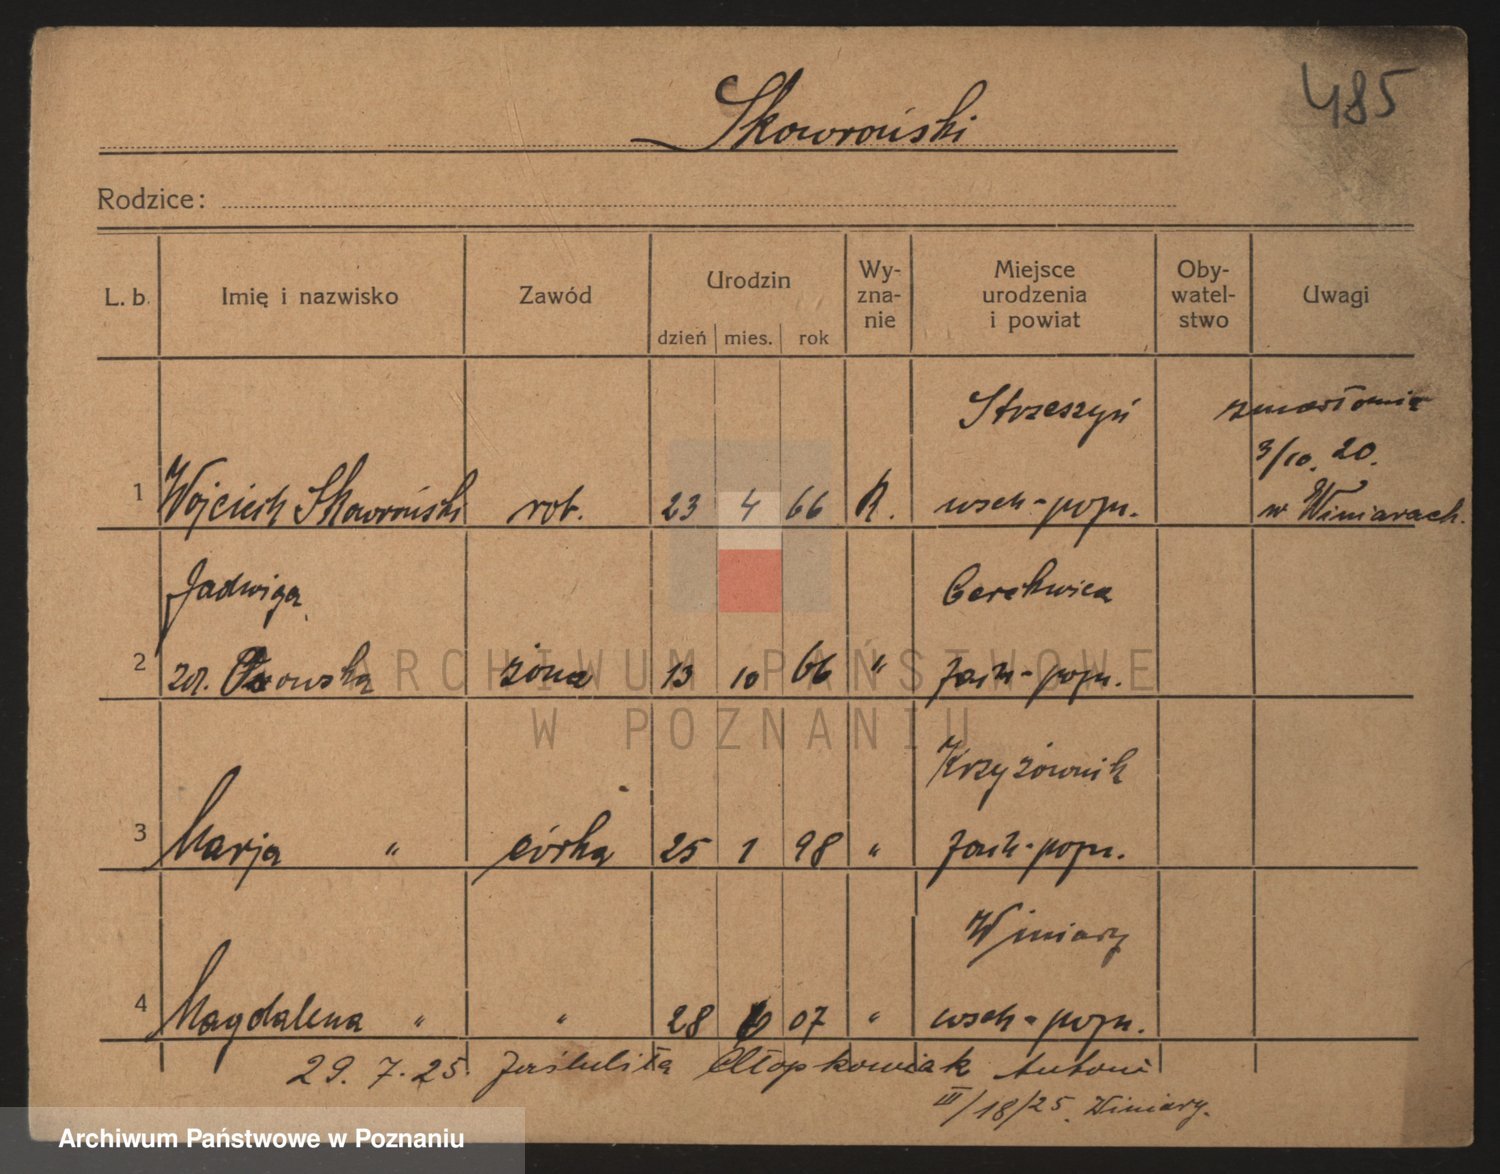 485
Skowroński
Rodzice:
L. b. Imię i nazwisko Zawód Urodzin dzień mies. rok Wy-zna-nie Miejsce urodzenia i powiat Oby-watel-stwo Uwagi
Strzeszyń zmarł
3/10. 20.
1 Wojciech Skowroński rob. 23 4 66 R. wsch-pozn. w Winiarach.
Jadwiga Cerekwica
2 żona 13 10 66 " zach-pozn.
ARCHIWUM PAŃSTWOWE
W POZNANIU
Krzyżownik
3 Marja " córka 25 1 98 " zach-pozn.
Winiary
4 Magdalena " " 28 6 07 " wsch-pozn.
29. 7. 25. zaślubiła Chłopkowiak Antoni
III/18/25. Winiary.
Archiwum Państwowe w Poznaniu